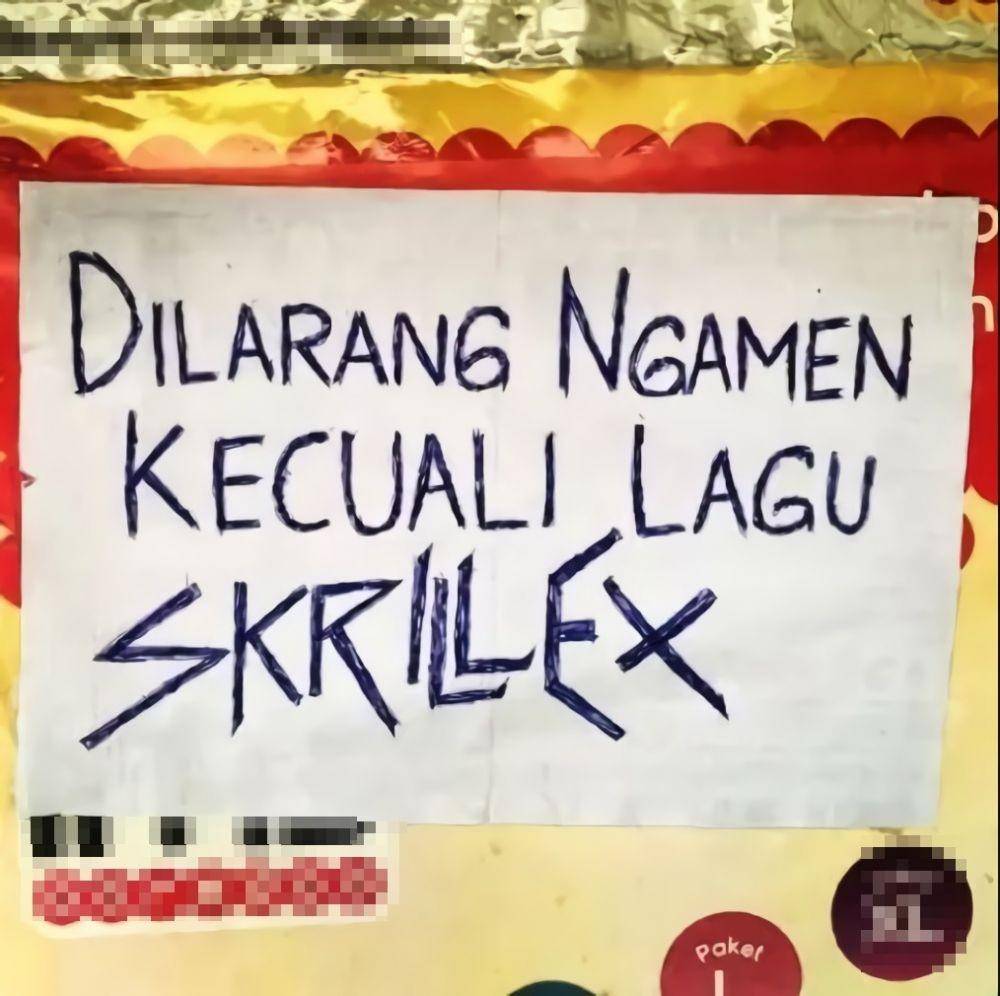 DILARANG NGAMEN
KECUALI LAGU
SKRILLEX
Paket